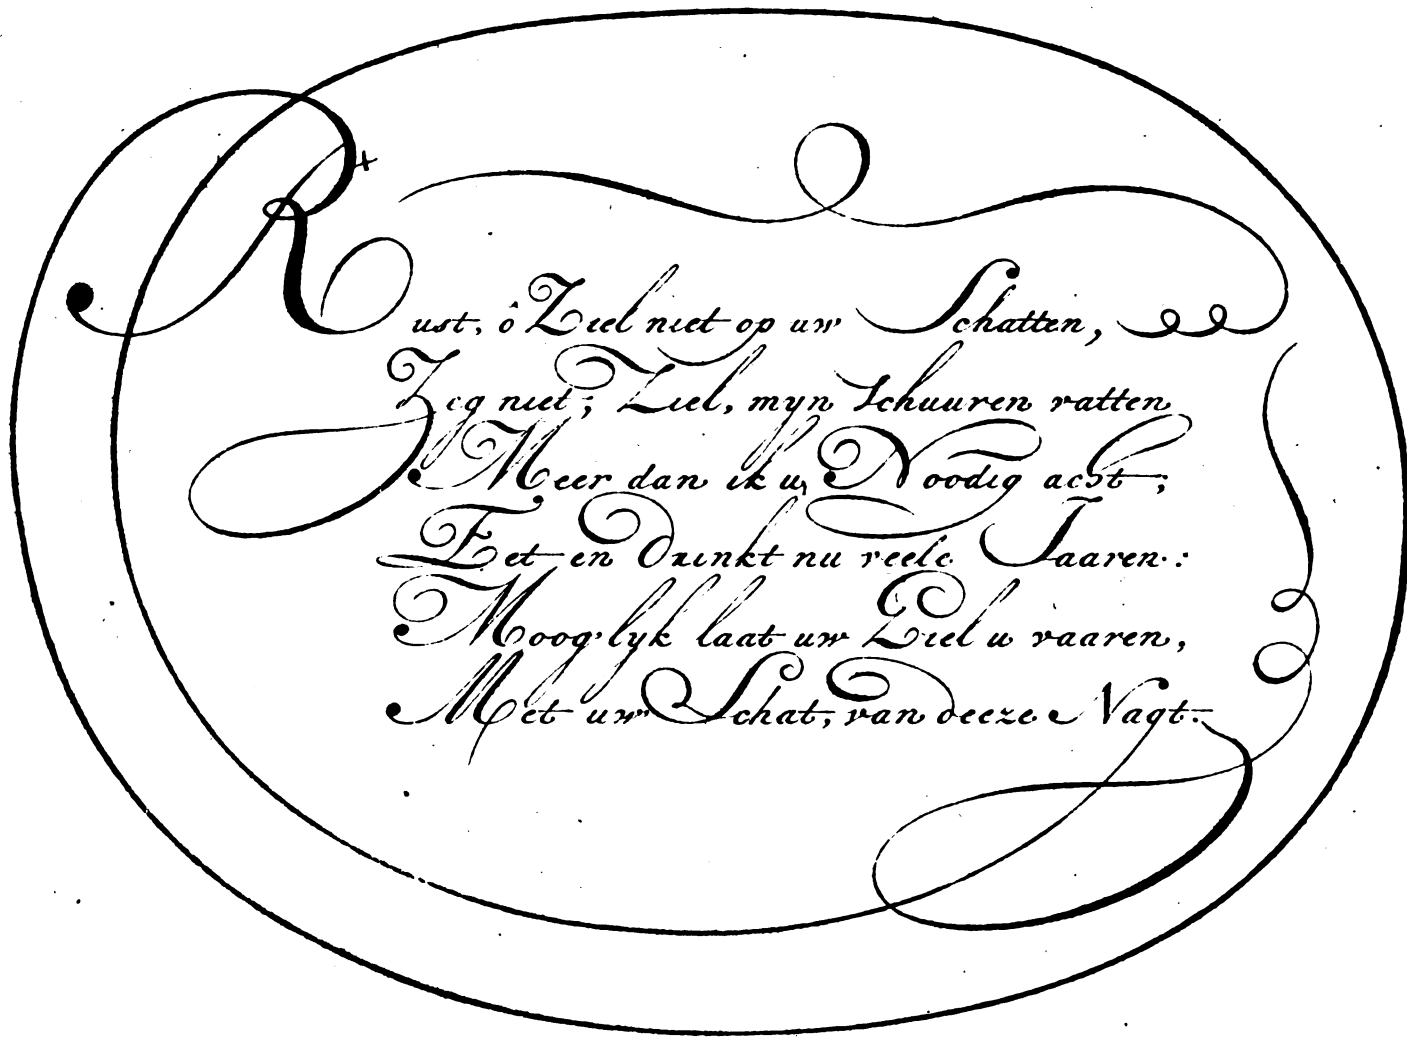 Rust, ô Ziel niet op uw Schatten,
Zeg niet; Ziel, myn Schuuren vatten
Meer dan ik u, Noodig acht;
Eet en Drinkt nu veele Jaaren:
Moog'lyk laat uw Ziel u vaaren,
Met uw Schat, van deeze Nagt.